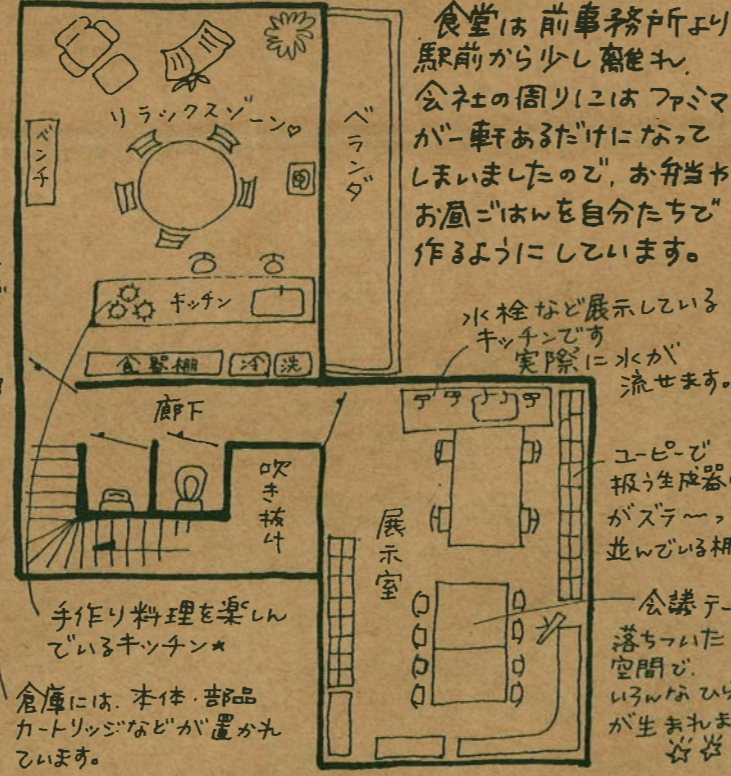 食堂は前事務所より
駅前から少し離れ、
会社の周りにはファミマ
が一軒あるだけになって
しまいましたので、お弁当や
お昼ごはんを自分たちで
作るようにしています。
リラックスゾーン♡
ベンチ
ベランダ
キッチン
食器棚
冷
洗
水栓など展示している
キッチンです
実際に水が
流せます。
廊下
吹き抜け
展示室
ユーピーで
扱う生成器
がズラ〜っ
並んでいる棚
会議テー
落ちついた
空間で、
いろんなひら
が生まれま
☆☆
手作り料理を楽しん
でいるキッチン★
倉庫には、本体・部品
カートリッジなどが置かれ
ています。